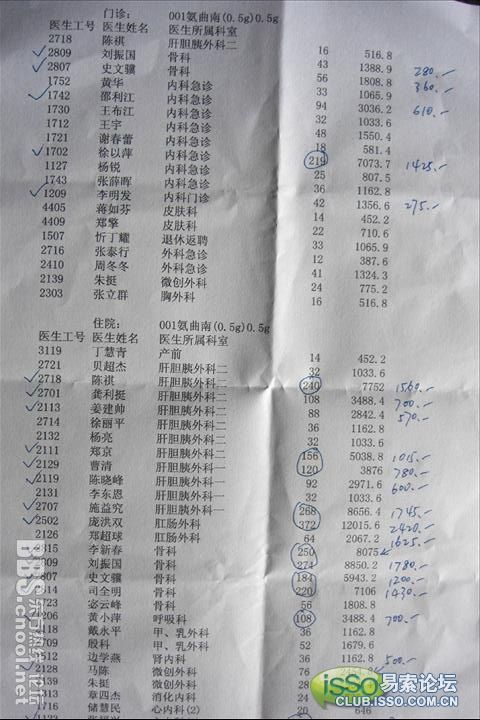 门诊: 001氨曲南(0.5g)0.5g
医生工号 医生姓名 医生所属科室
2718 陈祺 肝胆胰外科二 16 516.8
2809 刘振国 骨科 43 1388.9 280.-
2807 史文骥 骨科 56 1808.8 360.-
1752 黄华 内科急诊 33 1065.9
1742 邵利江 内科急诊 94 3036.2 610.-
1730 王布江 内科急诊 32 1033.6
1712 王宇 内科急诊 48 1550.4
1721 谢春蕾 内科急诊 18 581.4
1702 徐以萍 内科急诊 219 7073.7 1425.-
1127 杨锐 内科急诊 25 807.5
1743 张薛晖 内科急诊 36 1162.8
1209 李明发 内科门诊 42 1356.6 275.-
4405 蒋如芬 皮肤科 14 452.2
4409 郑擎 皮肤科 22 710.6
1507 忻丁耀 退休返聘 33 1065.9
2716 张泰行 外科急诊 12 387.6
2410 周冬冬 外科急诊 41 1324.3
2139 朱挺 微创外科 24 775.2
2303 张立群 胸外科 16 516.8
住院: 001氨曲南(0.5g)0.5g
医生工号 医生姓名 医生所属科室
3119 丁慧青 产前 14 452.2
2721 贝超杰 肝胆胰外科二 32 1033.6
2718 陈祺 肝胆胰外科二 240 7752 1560.-
2701 龚利挺 肝胆胰外科二 108 3488.4 700.-
2113 姜建帅 肝胆胰外科二 88 2842.4 570.-
2714 徐丽平 肝胆胰外科二 36 1162.8
2132 杨亮 肝胆胰外科二 32 1033.6
2111 郑京 肝胆胰外科二 156 5038.8 1015.-
2129 曹清 肝胆胰外科一 120 3876 780.-
2119 陈晓峰 肝胆胰外科一 92 2971.6 600.-
2131 李东恩 肝胆胰外科一 32 1033.6
2707 施益究 肝胆胰外科一 268 8656.4 1745.-
2502 庞洪双 肛肠外科 372 12015.6 2420.-
2126 郑超球 肛肠外科 64 2067.2
815 李新春 骨科 250 8075 1625.-
809 刘振国 骨科 274 8850.2 1780.-
807 史文骥 骨科 184 5943.2 1200.-
814 司全明 骨科 220 7106 1430.-
723 宓云峰 骨科 56 1808.8
206 黄小萍 呼吸科 108 3488.4 700.-
118 戴永平 甲、乳外科 36 1162.8
709 殷科 甲、乳外科 52 1679.6
512 边学燕 肾内科 36 1162.8
2128 马陈 微创外科 76 500.-
2139 朱挺 微创外科 28
313 章四杰 消化内科
1716 储慧民 心内科(2) 20 646
BBS.cnool.net
东方热线·论坛
isso 易索论坛
CLUB.ISSO.COM.CN